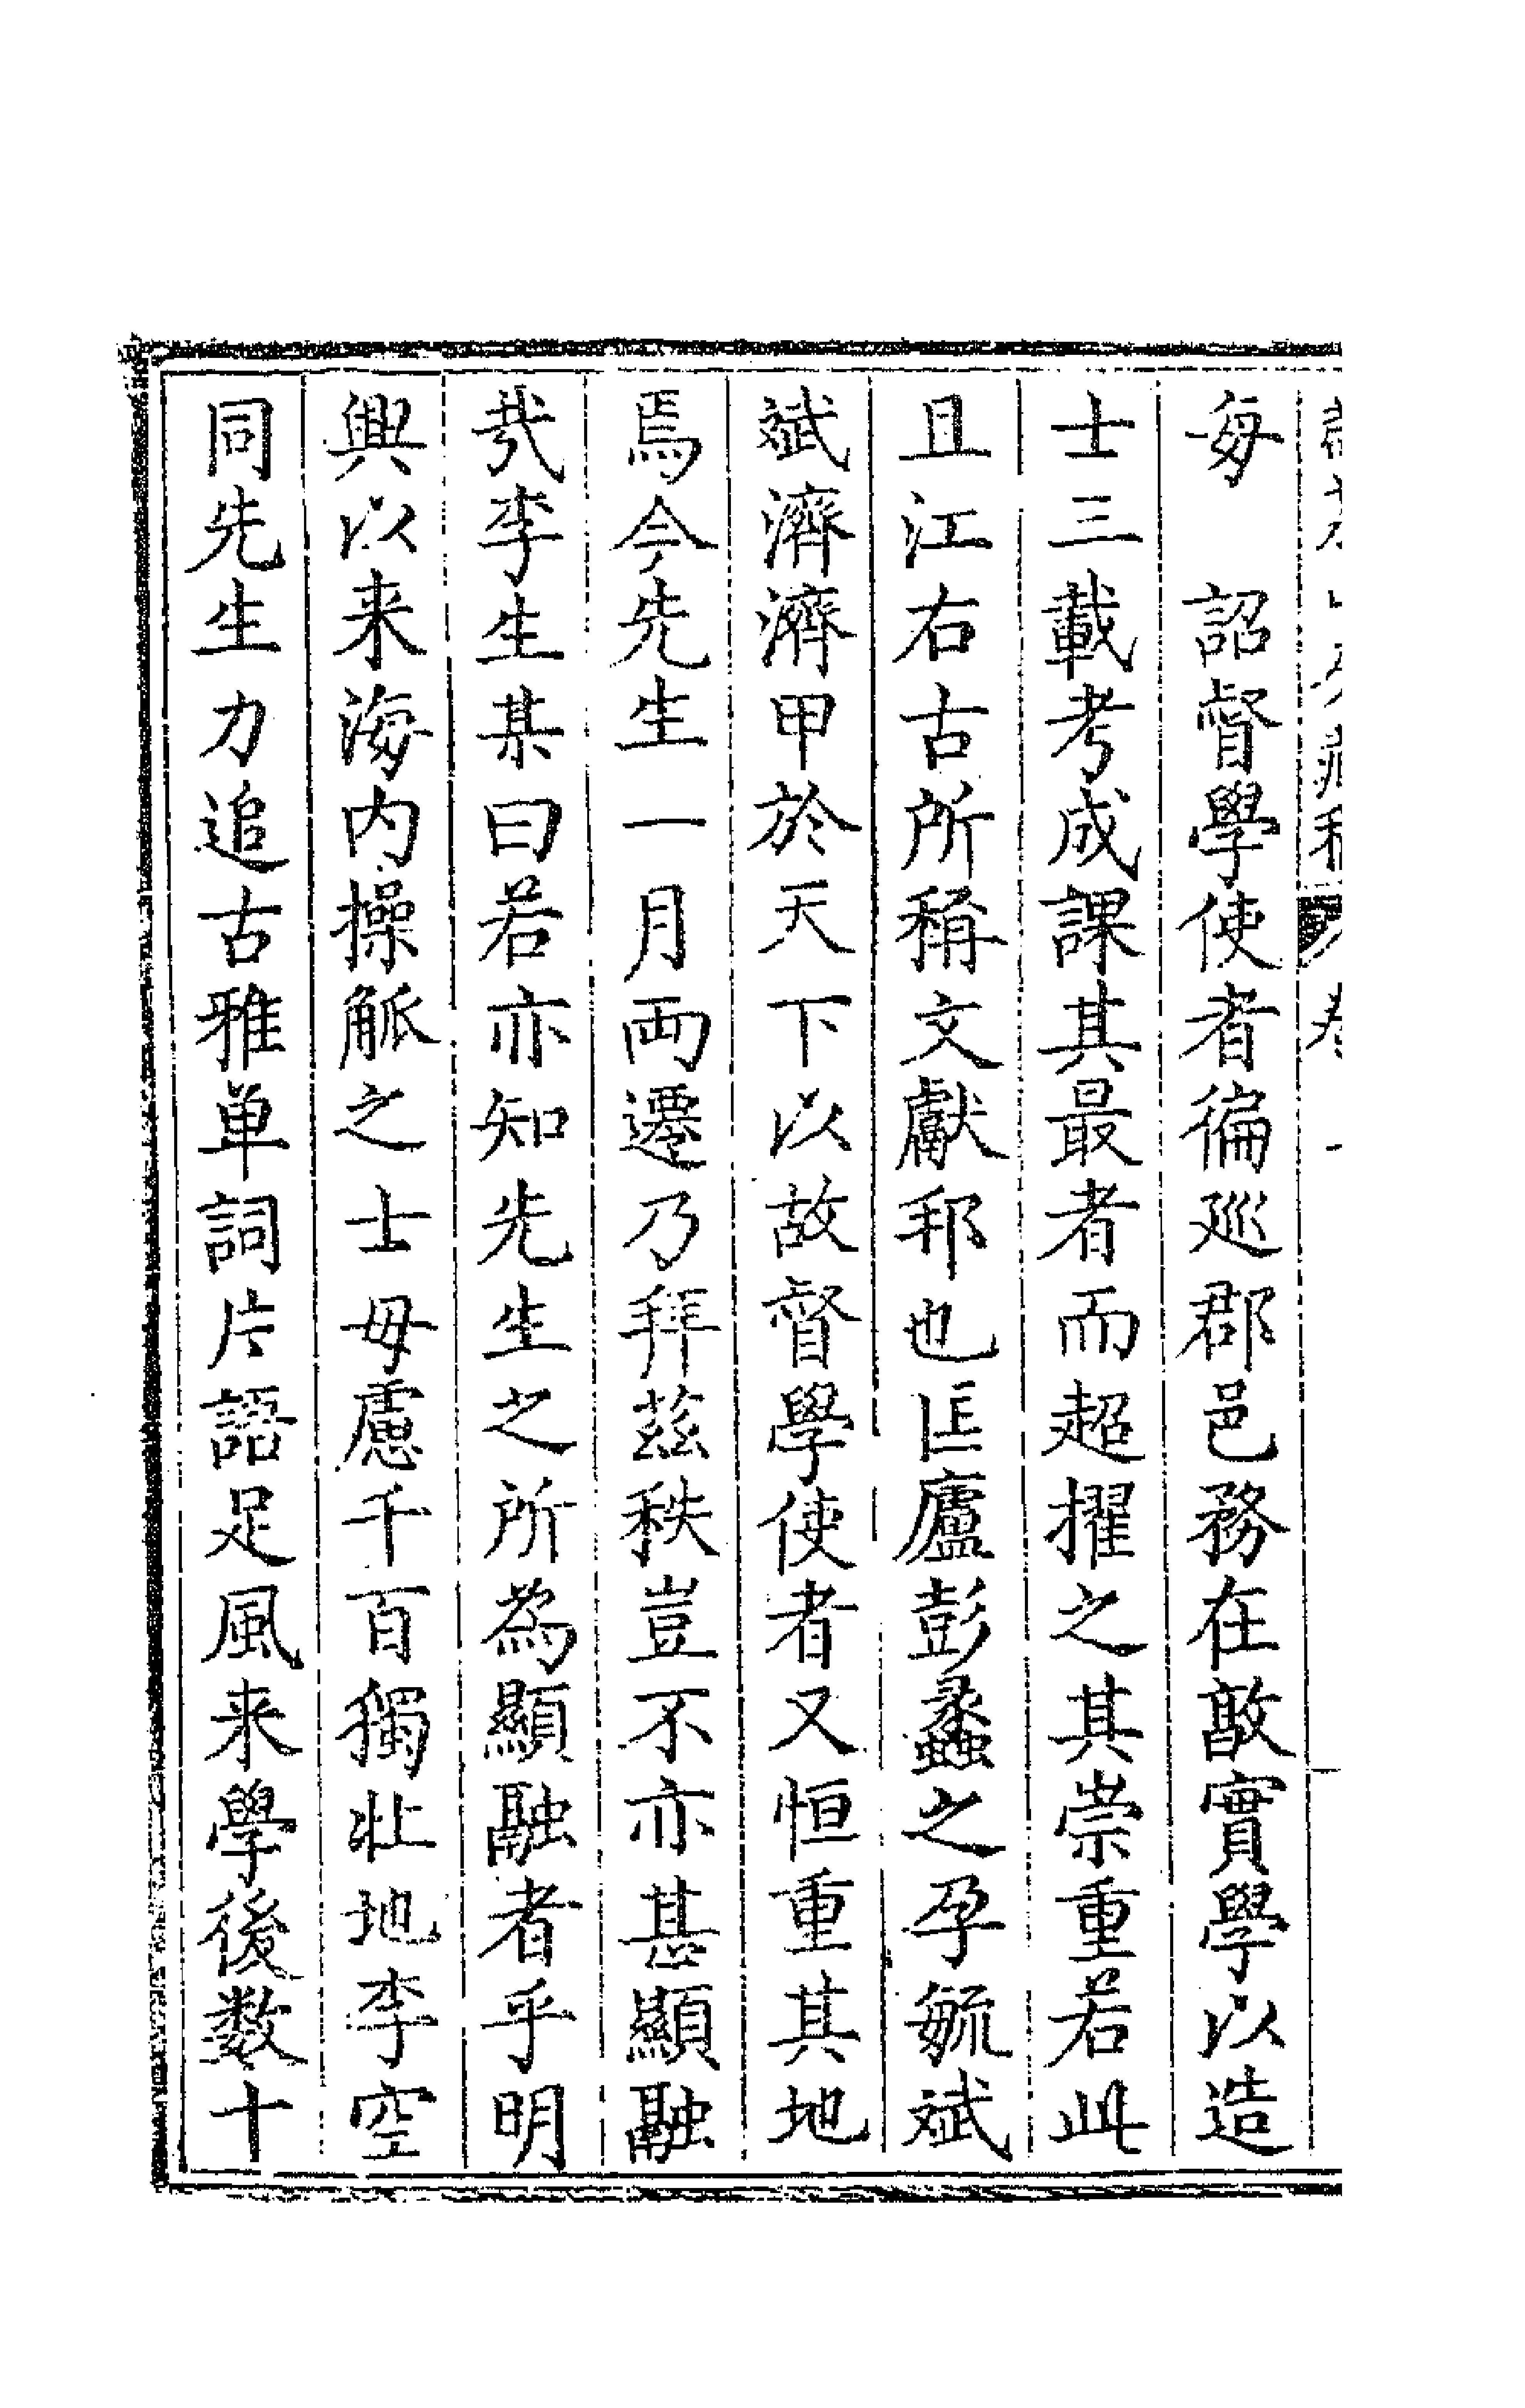 每　詔督學使者徧廵郡邑務在敦實學以造
士三載考成課其最者而超擢之其崇重若此
且江右古所稱文獻邦也匡廬彭蠡之孕毓斌
斌濟濟甲於天下以故督學使者又恒重其地
焉今先生一月両遷乃拜茲秩豈不亦甚顯融
㢤李生某曰若亦知先生之所為顯融者乎明
興以来海内操觚之士毋慮千百獨壯地李空
同先生力追古雅单詞片語足風来學後数十